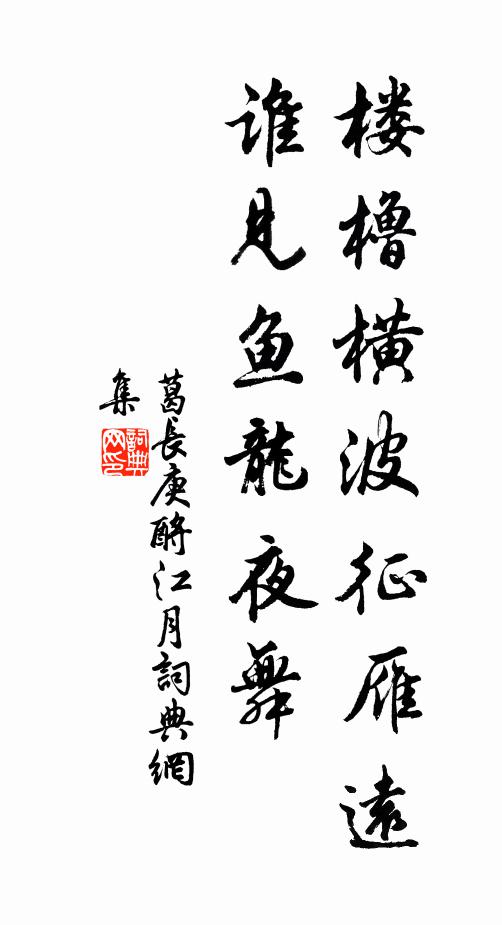 楼橹横波征雁遠
谁见鱼龍夜舞
葛長庚酹江月詞典網
集
詞典
网印